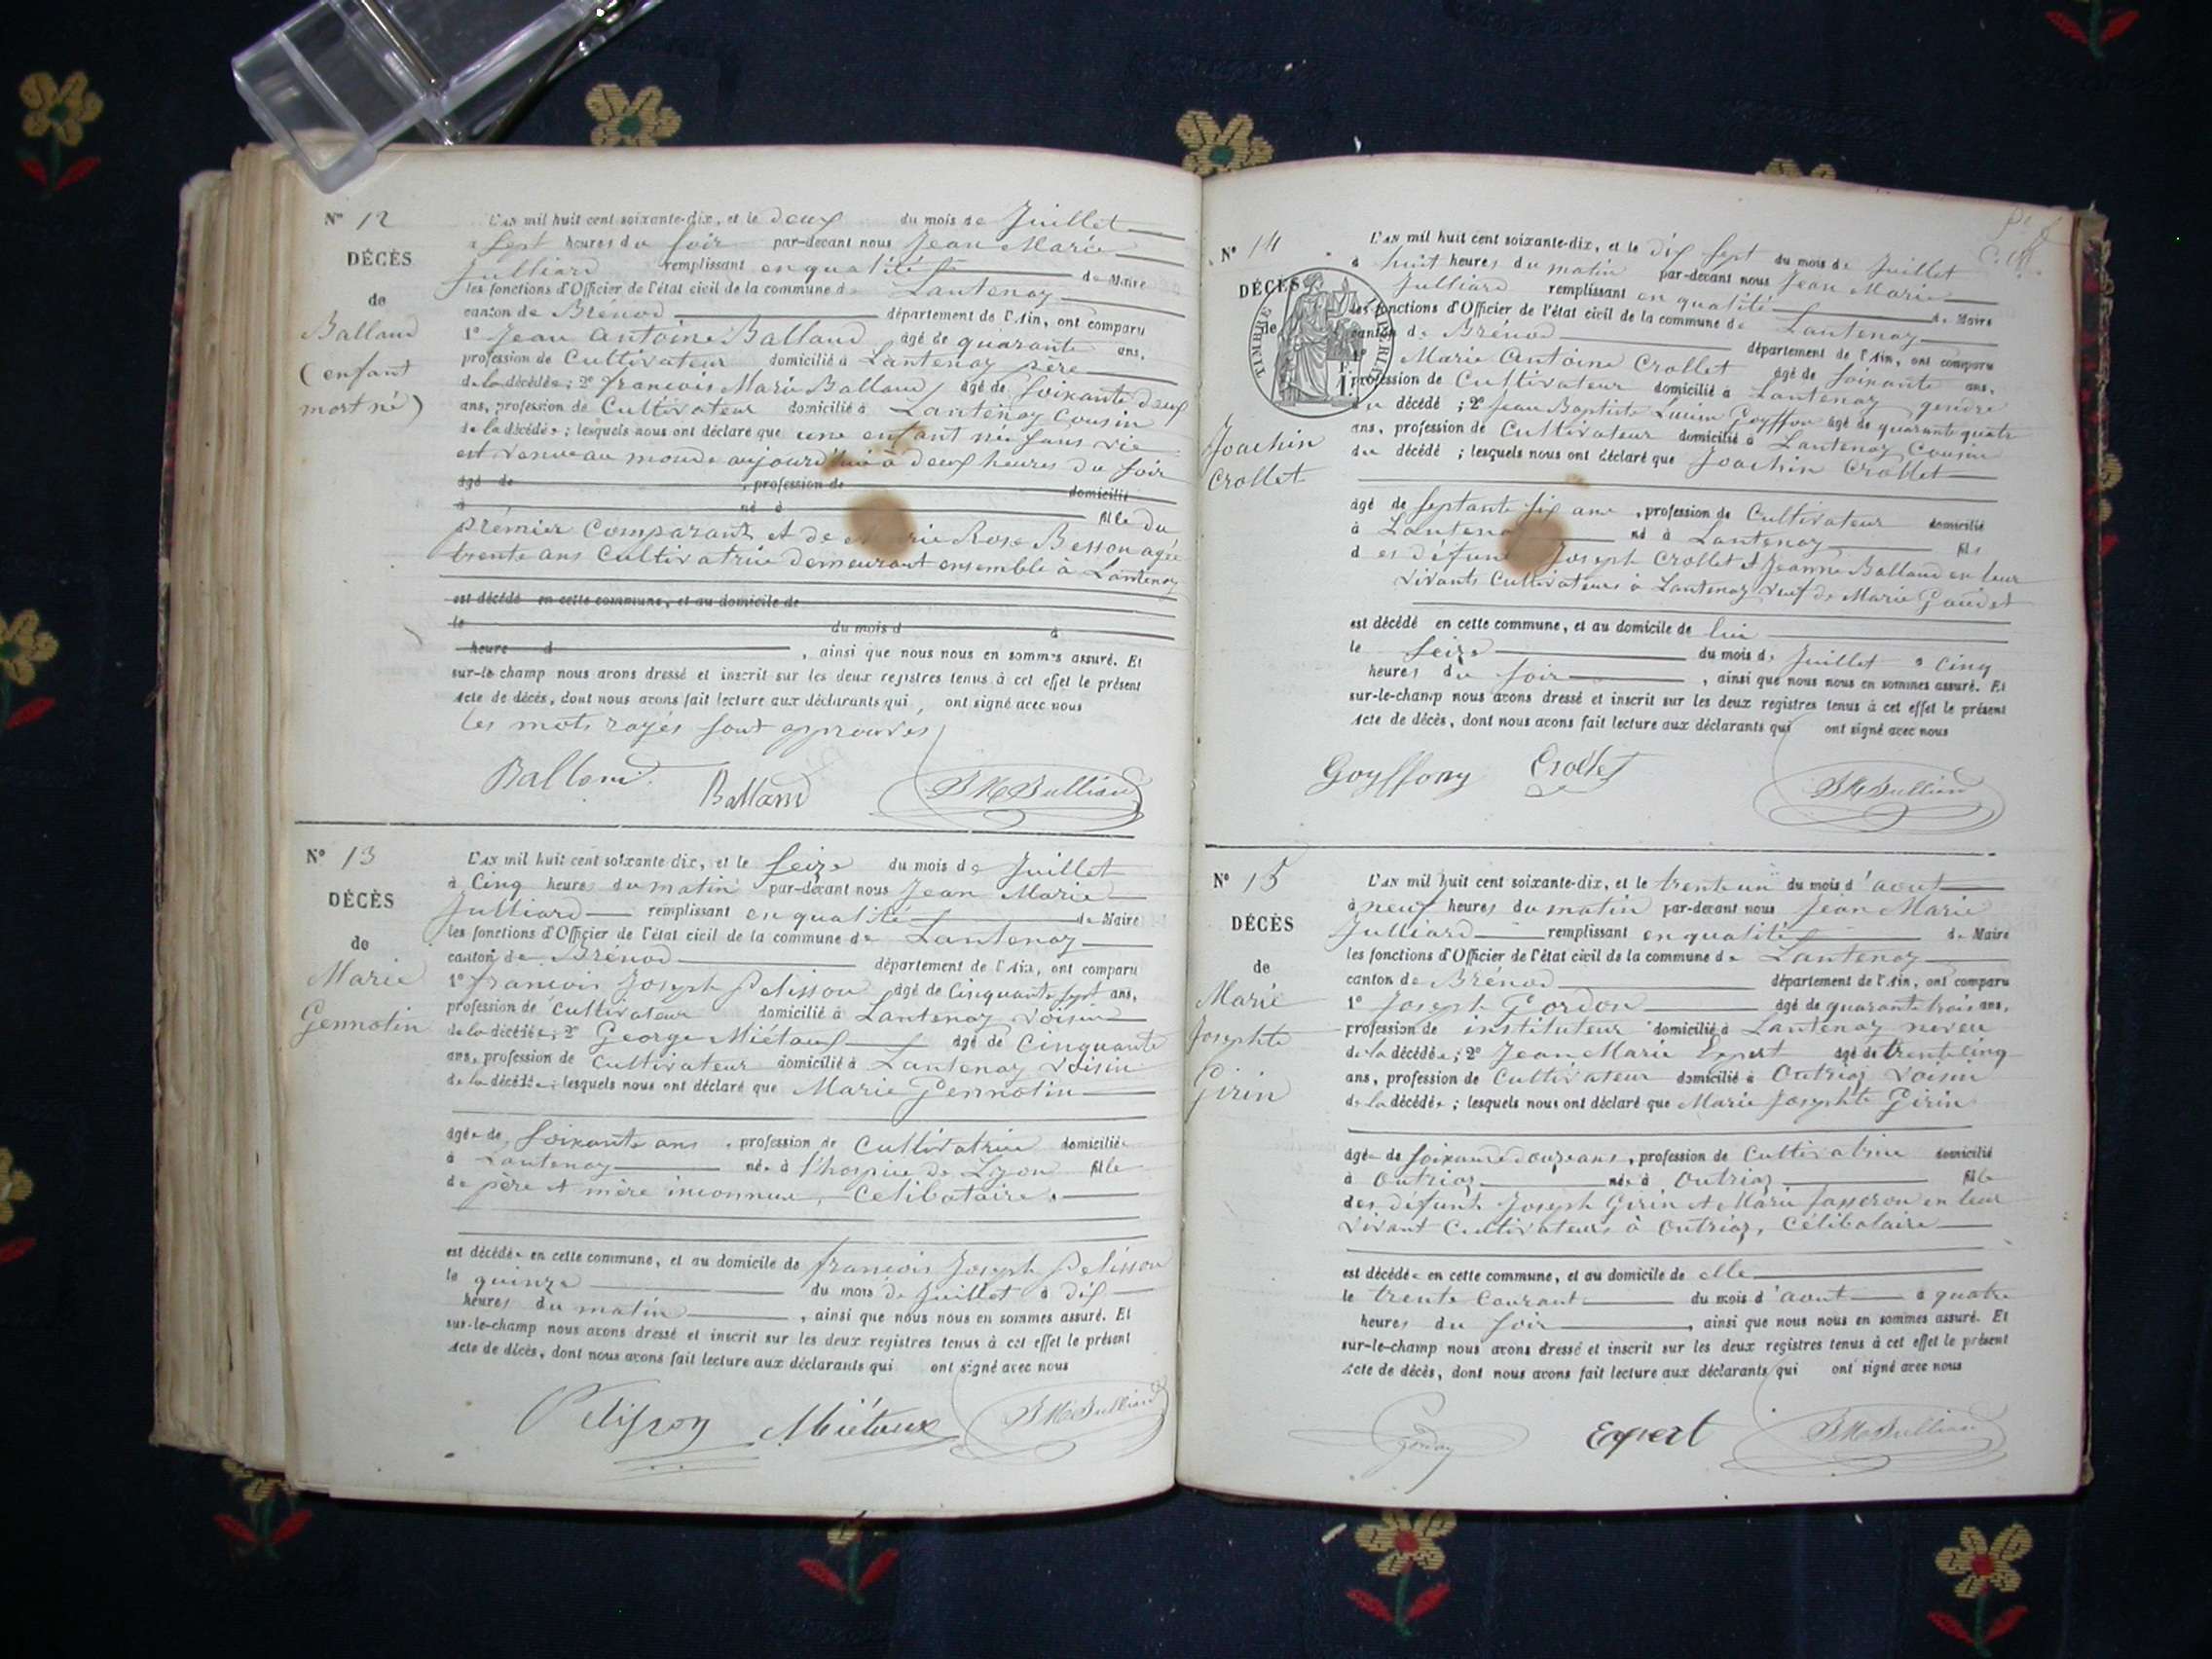 N° 12
DÉCÈS
de
Balland
(enfant
mort né)
L'AN mil huit cent soixante-dix, et le deux du mois de Juillet
à sept heures du soir par-devant nous Jean Marie
Julliard remplissant en qualité de Maire
les fonctions d'Officier de l'état civil de la commune de Lantenay
canton de Brénod département de l'Ain, ont comparu
1° Jean Antoine Balland âgé de quarante ans,
profession de Cultivateur domicilié à Lantenay père
de la décédée ; 2° françois Marie Balland âgé de soixante deux
ans, profession de Cultivateur domicilié à Lantenay Cousin
de la décédée ; lesquels nous ont déclaré que une enfant née sans vie
est venue au monde aujourd'hui à deux heures du soir
âgé de , profession de domicilié
à né à fille du
prémier Comparant et de Marie Rose Besson agée
trente ans Cultivatrice demeurant ensemble à Lantenay
est décédé en cette commune, et au domicile de
le du mois d à
heure d , ainsi que nous nous en sommes assuré. Et
sur-le-champ nous avons dressé et inscrit sur les deux registres tenus à cet effet le présent
acte de décès, dont nous avons fait lecture aux déclarants qui ont signé avec nous
les mots rayés sont approuvés
Balland Balland JM Julliard
N° 13
DÉCÈS
de
Marie
Gennotin
L'AN mil huit cent soixante-dix, et le seize du mois de Juillet
à Cinq heures du matin par-devant nous Jean Marie
Julliard remplissant en qualité de Maire
les fonctions d'Officier de l'état civil de la commune de Lantenay
canton de Brénod département de l'Ain, ont comparu
1° françois Joseph Pelisson âgé de Cinquante sept ans,
profession de cultivateur domicilié à Lantenay voisin
de la décédée ; 2° George Miétaux âgé de Cinquante
ans, profession de Cultivateur domicilié à Lantenay voisin
de la décédée ; lesquels nous ont déclaré que Marie Gennotin
âgée de soixante ans , profession de Cultivatrice domiciliée
à Lantenay née à l'hospice de Lyon fille
de père et mère inconnus, Celibataire.
est décédée en cette commune, et au domicile de françois Joseph Pelisson
le quinze du mois de Juillet à dix
heures du matin , ainsi que nous nous en sommes assuré. Et
sur-le-champ nous avons dressé et inscrit sur les deux registres tenus à cet effet le présent
acte de décès, dont nous avons fait lecture aux déclarants qui ont signé avec nous
Pelisson Miétaux JM Julliard
N° 14
DÉCÈS
de
Joachin
Crollet
TIMBRE
L'AN mil huit cent soixante-dix, et le dix sept du mois de Juillet
à huit heures du matin par-devant nous Jean Marie
Julliard remplissant en qualité de Maire
les fonctions d'Officier de l'état civil de la commune de Lantenay
canton de Brénod département de l'Ain, ont comparu
1° Marie Antoine Crollet âgé de soixante ans,
profession de Cultivateur domicilié à Lantenay gendre
du décédé ; 2° Jean Baptiste Lucien Goyffon âgé de quarante quatre
ans, profession de Cultivateur domicilié à Lantenay Cousin
du décédé ; lesquels nous ont déclaré que Joachin Crollet
âgé de septante six ans , profession de Cultivateur domicilié
à Lantenay né à Lantenay fils
des défunt Joseph Crollet et Jeanne Balland en leur
vivants Cultivateurs à Lantenay veuf de Marie Gaudet
est décédé en cette commune, et au domicile de lui
le seize du mois de Juillet à Cinq
heures du soir , ainsi que nous nous en sommes assuré. Et
sur-le-champ nous avons dressé et inscrit sur les deux registres tenus à cet effet le présent
acte de décès, dont nous avons fait lecture aux déclarants qui ont signé avec nous
Goyffon Crollet JM Julliard
N° 15
DÉCÈS
de
Marie
Josephte
Girin
L'AN mil huit cent soixante-dix, et le trente un du mois d'aout
à neuf heures du matin par-devant nous Jean Marie
Julliard remplissant en qualité de Maire
les fonctions d'Officier de l'état civil de la commune de Lantenay
canton de Brénod département de l'Ain, ont comparu
1° Joseph Gordon âgé de quarante trois ans,
profession de instituteur domicilié à Lantenay neveu
de la décédée ; 2° Jean Marie Expert âgé de trente Cinq
ans, profession de Cultivateur domicilié à Outriaz voisin
de la décédée ; lesquels nous ont déclaré que Marie Josephte Girin
âgée de soixante douze ans , profession de Cultivatrice domicilié
à Outriaz née à Outriaz fille
des défunt Joseph Girin et Marie Jasseron en leur
vivant Cultivateurs à Outriaz, Célibataire
est décédée en cette commune, et au domicile de elle
le trente Courant du mois d'aout à quatre
heures du soir , ainsi que nous nous en sommes assuré. Et
sur-le-champ nous avons dressé et inscrit sur les deux registres tenus à cet effet le présent
acte de décès, dont nous avons fait lecture aux déclarants qui ont signé avec nous
Gordon Expert JM Julliard